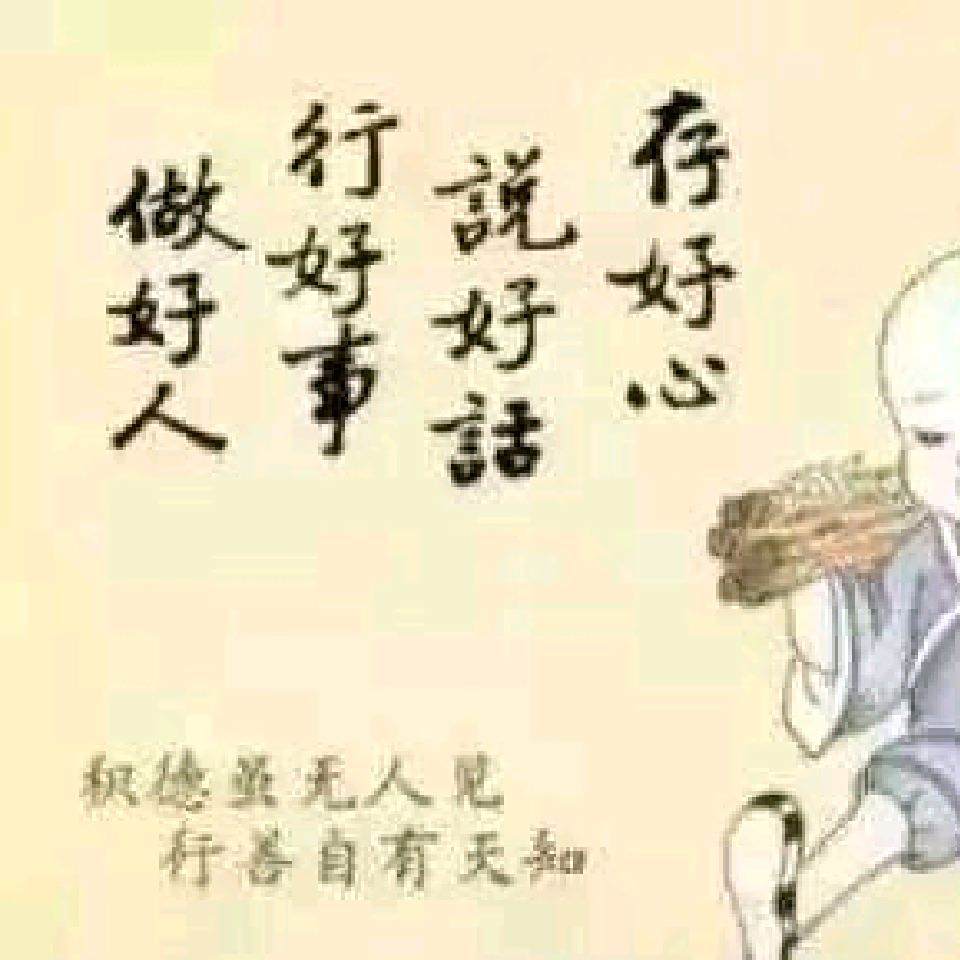 存好心
説好話
行好事
做好人
积德虽无人见
行善自有天知